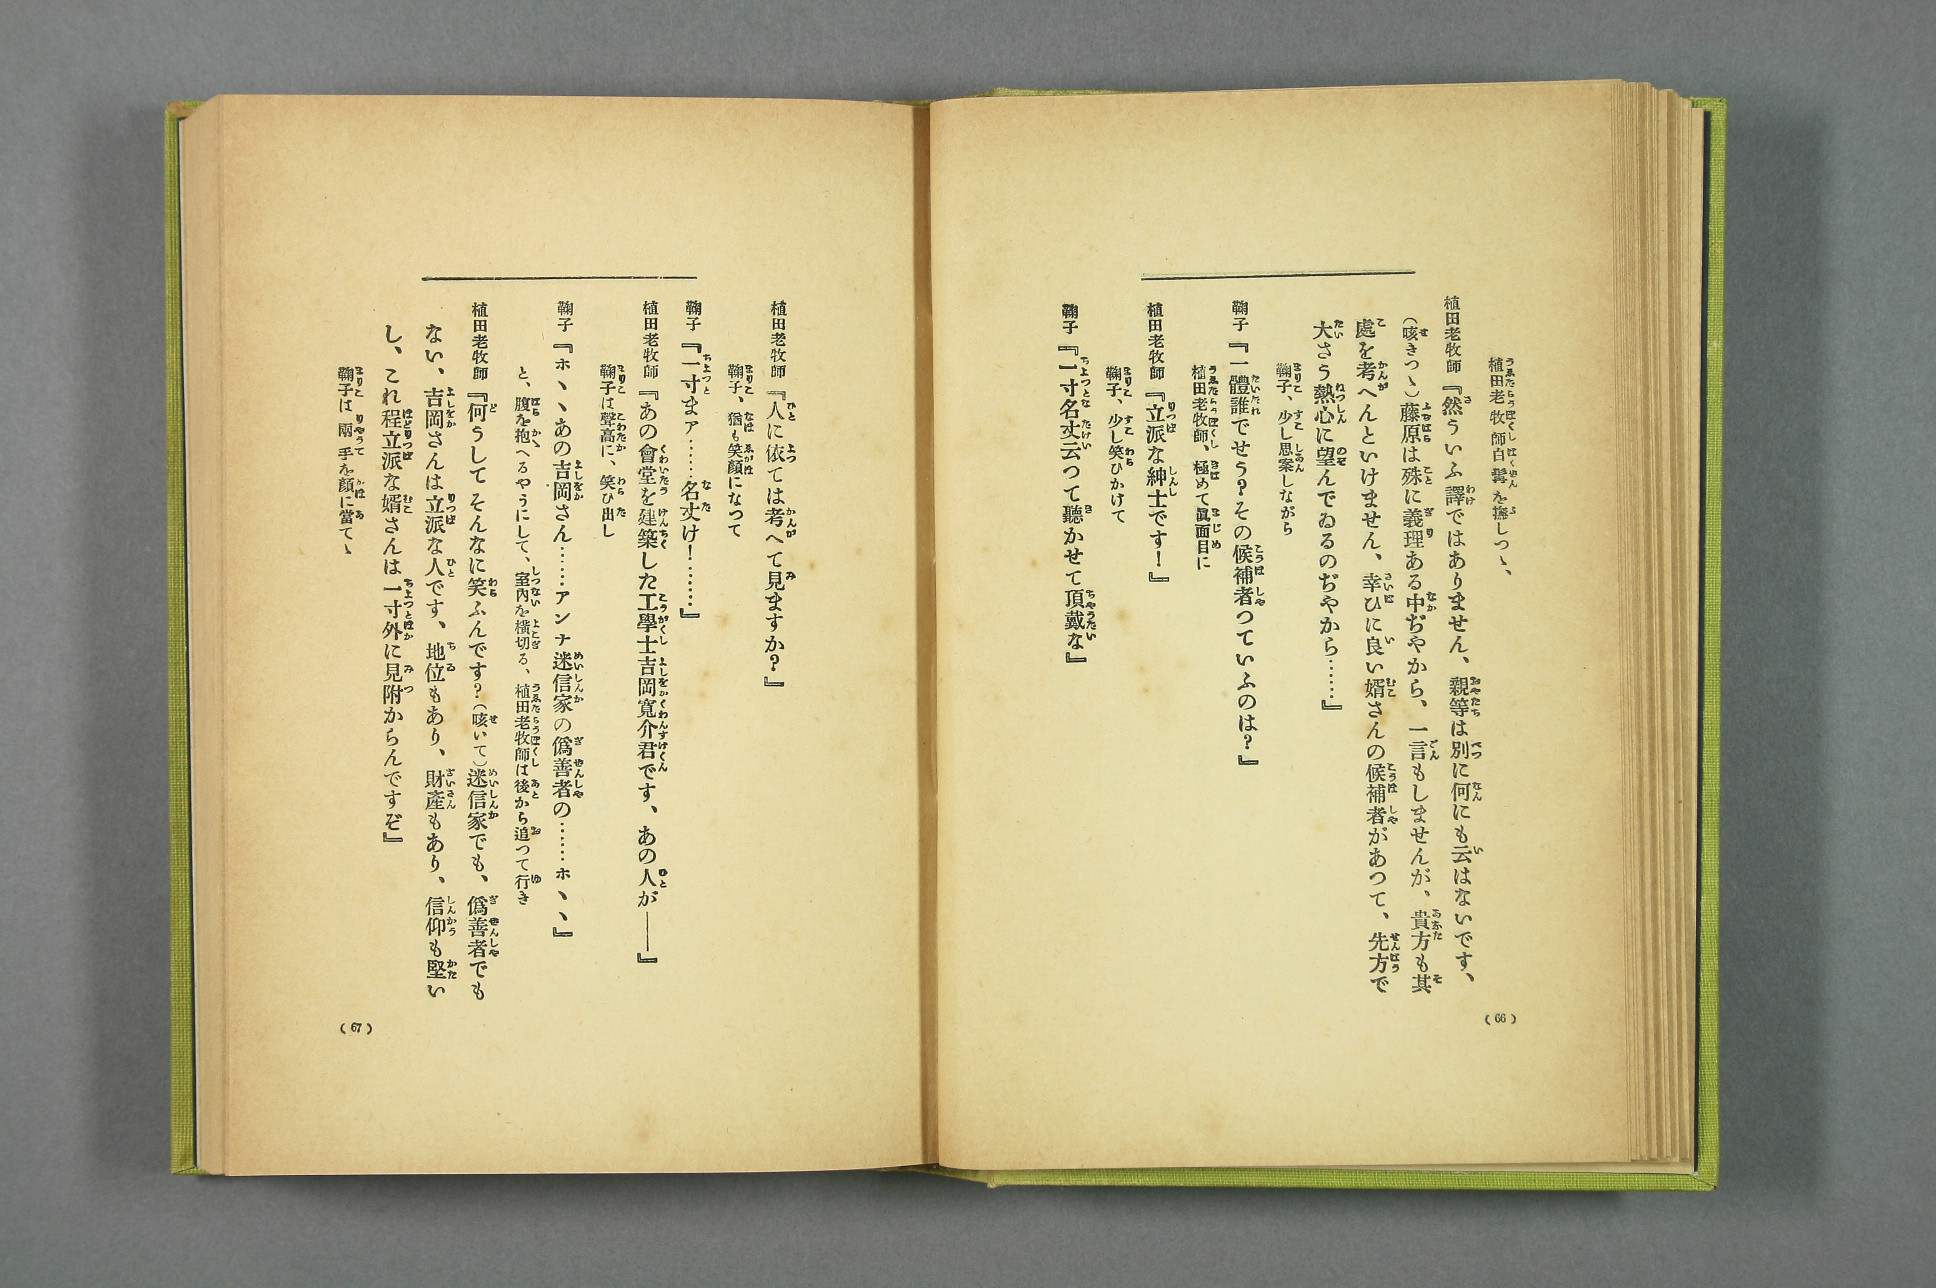 植田老牧師白髯を撫しつゝ、
植田老牧師『然ういふ譯ではありません、親等は別に何にも云はないです、
(咳きつゝ)藤原は殊に義理ある中ぢやから、一言もしませんが、貴方も其
處を考へんといけません、幸ひに良い婿さんの候補者があつて、先方で
大さう熱心に望んでゐるのぢやから……』
鞠子、少し思案しながら
鞠子『一體誰でせう?その候補者つていふのは?』
植田老牧師、極めて眞面目に
植田老牧師『立派な紳士です!』
鞠子、少し笑ひかけて
鞠子『一寸名丈云つて聽かせて頂戴な』
(66)
植田老牧師『人に依ては考へて見ますか?』
鞠子、猶も笑顔になつて
鞠子『一寸まア……名丈け!……』
植田老牧師『あの會堂を建築した工學士吉岡寬介君です、あの人が――』
鞠子は聲高に、笑ひ出し
鞠子『ホヽヽあの吉岡さん……アンナ迷信家の僞善者の……ホヽヽ』
と、腹を抱へるやうにして、室內を橫切る、植田老牧師は後から追つて行き
植田老牧師『何うしてそんなに笑ふんです?(咳いて)迷信家でも、僞善者でも
ない、吉岡さんは立派な人です、地位もあり、財產もあり、信仰も堅い
し、これ程立派な婿さんは一寸外に見附からんですぞ』
鞠子は兩手を顔に當てゝ
(67)